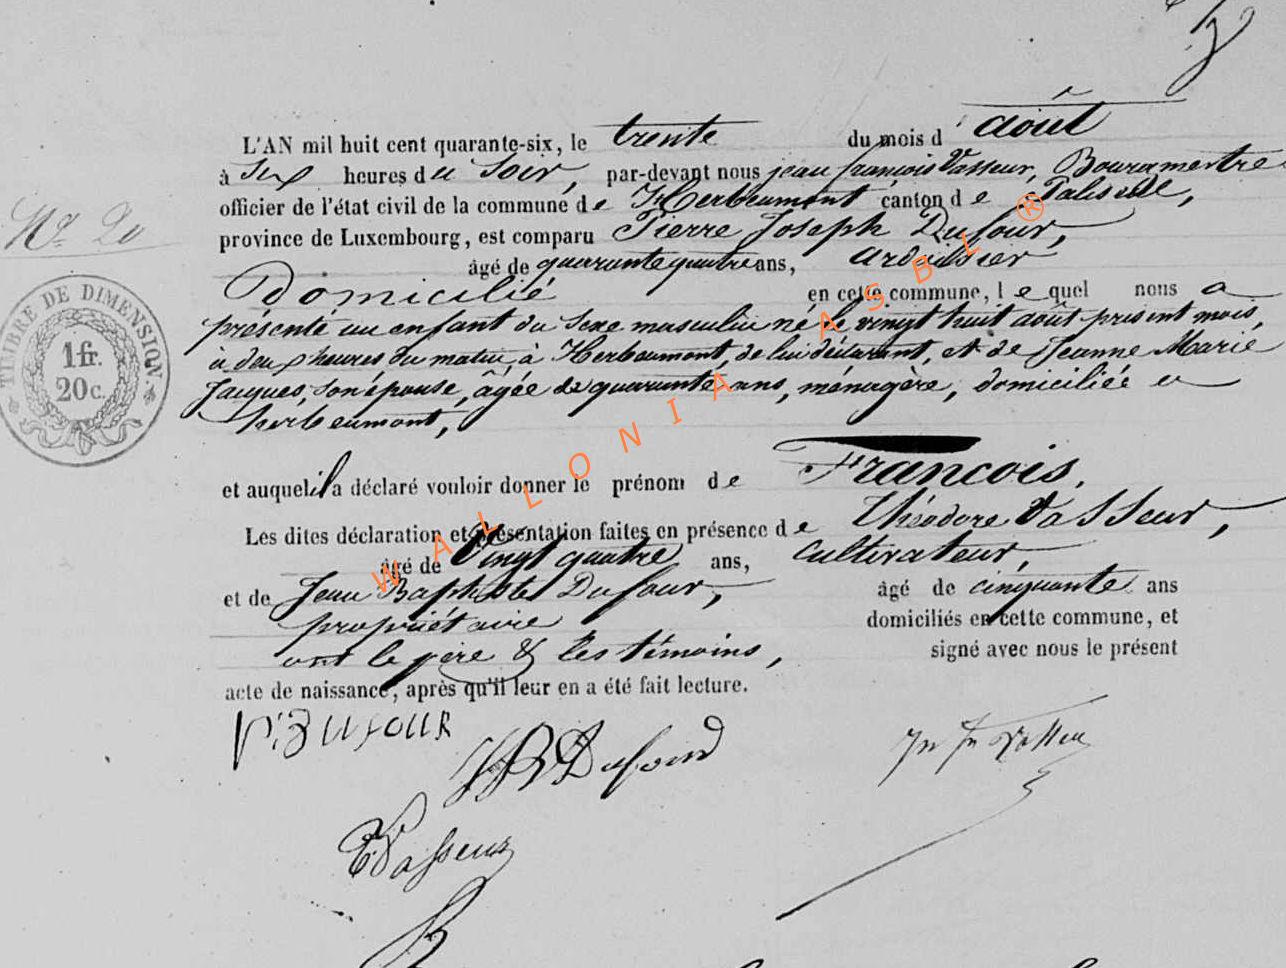 L'AN mil huit cent quarante-six, le trente du mois d'août
à six heures du soir, par-devant nous jean françois Vasseur, Bourgmestre
officier de l'état civil de la commune de Herbeumont canton de Paliseul,
province de Luxembourg, est comparu Pierre Joseph Dufour,
âgé de quarante quatre ans, ardoisier
Domicilié en cette commune, lequel nous a
présenté un enfant du sexe masculin né le vingt huit août présent mois,
à deux heures du matin, à Herbeumont, de lui déclarant, et de Jeanne Marie
Jacques, son épouse, âgée de quarante ans, ménagère, domiciliée a
herbeumont,
et auquel il a déclaré vouloir donner le prénom de François.
Les dites déclaration et présentation faites en présence de Théodore Vasseur,
âgé de Vingt quatre ans, cultivateur,
et de Jean Baptiste Dufour, âgé de cinquante ans
propriétaire domiciliés en cette commune, et
ont le père & les témoins, signé avec nous le présent
acte de naissance, après qu'il leur en a été fait lecture.
N° 20
TIMBRE DE DIMENSION.
1 fr.
20 c.
P.J DUFOUR
JB Dufour
Jn Fn Vasseur
T. Vasseur
WALLONIA ASBL ®